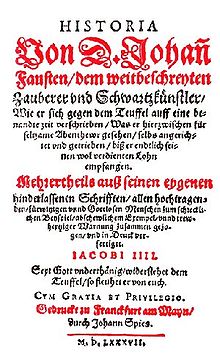 HISTORIA
Von D. Johañ
Fausten / dem weitbeschreyten
Zauberer vnd Schwartzkünstler /
Wie er sich gegen dem Teuffel auff eine be-
nandte zeit verschrieben / Was er hierzwischen für
seltzame Abentheuwr gesehen / selbs angerich-
tet vnd getrieben / biß er endtlich sei-
nen wol verdienten Lohn
empfangen.
Mehrertheils auß seinen eygenen
hinderlassenen Schrifften / allen hochtragen-
den / fürwitzigen vnd Gottlosen Menschen zum schrecklichen
Beyspiel / abscheuwlichem Exempel / vnd treuw-
hertziger Warnung zusammen gezo-
gen / vnd in Druck ver-
fertiget.
IACOBI IIII.
Seyt Gott vnderthänig / widerstehet dem
Teuffel / so fleuhet er von euch.
CVM GRATIA ET PRIVILEGIO.
Gedruckt zu Franckfurt am Mayn /
durch Johann Spies.
M. D. LXXXVII.